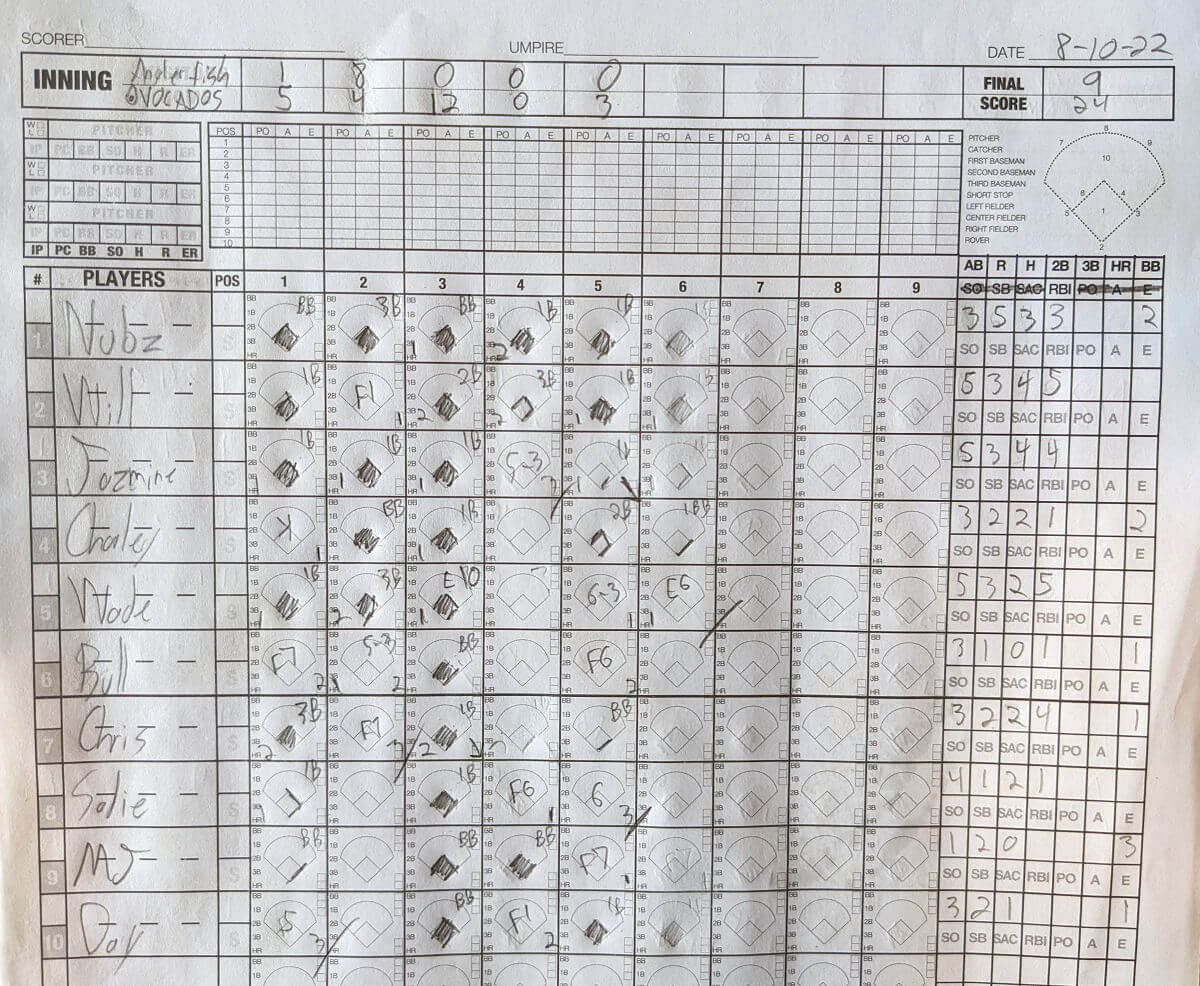 SCORER UMPIRE DATE 8-10-22
INNING Anglerfish 1 8 0 0 0 FINAL 9
AVOCADOS 5 4 12 0 3 SCORE 24
W L PITCHER POS PO A E PO A E PO A E PO A E PO A E PO A E PO A E PO A E PO A E
IP PC BB SO H R ER
W L PITCHER
IP PC BB SO H R ER
W L PITCHER
IP PC BB SO H R ER
IP PC BB SO H R ER
1
2
3
4
5
6
7
8
9
10
PITCHER
CATCHER
FIRST BASEMAN
SECOND BASEMAN
THIRD BASEMAN
SHORT STOP
LEFT FIELDER
CENTER FIELDER
RIGHT FIELDER
ROVER
8
7 9
10
6 4
5 1 3
2
AB R H 2B 3B HR BB
# PLAYERS POS 1 2 3 4 5 6 7 8 9 SO SB SAC RBI PO A E
1 Nubz BB 3B BB 1B 1B 3 5 3 3 2
SO SB SAC RBI PO A E
2 Will 1B F1 2B 3B 1B 5 3 4 5
SO SB SAC RBI PO A E
3 Jazmine 1B 1B 1B 5-3 5 3 4 4
SO SB SAC RBI PO A E
4 Charley K BB 1B 2B BB 3 2 2 1 2
SO SB SAC RBI PO A E
5 Wade 1B 3B E10 6-3 E6 5 3 2 5
SO SB SAC RBI PO A E
6 Bull F7 5-3 BB F6 3 1 0 1 1
SO SB SAC RBI PO A E
7 Chris 3B F7 1B BB 3 2 2 4 1
SO SB SAC RBI PO A E
8 Sadie 1B 1B F6 6 4 1 2 1
SO SB SAC RBI PO A E
9 MJ BB BB BB F7 1 2 0 3
SO SB SAC RBI PO A E
10 Day 5 BB F1 1B 3 2 1 1
SO SB SAC RBI PO A E